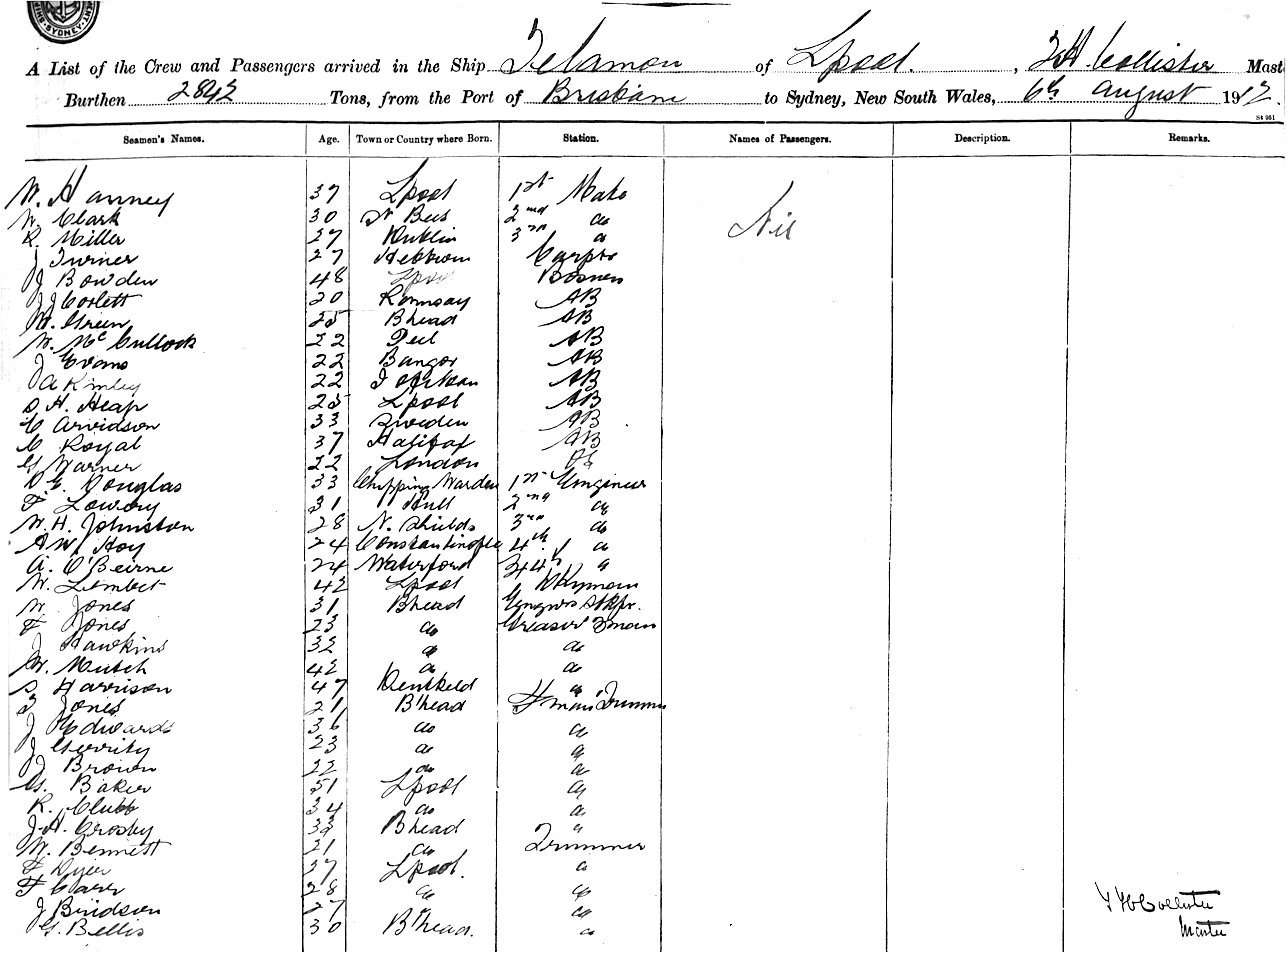 SYDNEY
A List of the Crew and Passengers arrived in the Ship Telamon of Lpool. , Mast
Burthen 2842 Tons, from the Port of Brisbane to Sydney, New South Wales, 6th August 1912.
St 251
Seamen's Names. Age. Town or Country where Born. Station. Names of Passengers. Description. Remarks.
W. Hanney 37 Lpool 1st Mate
W. Clark 30 2nd do Nil
R. Miller 27 Dublin 3rd do
J Turner 27 Hebburn Carptr
J Bowden 48 Lpool Bosun
J J Corlett 20 Ramsay AB
W. Green 25 Bhead AB
W. McCullock 22 Peel AB
J Evans 22 Bangor AB
A Kinley 22 AB
S. H. Heap 25 Lpool AB
C Arvidson 33 Sweden AB
C Royal 37 Halifax AB
G Warner 22 London
Douglas 33 Chipping Warden 1st Engineer
F Lowery 31 Hull 2nd do
W. H. Johnston 28 N. Shields 3rd do
A W Hoy 24 Constantinople 4th do
A. O'Beirne 24 Waterford
W. 42 Lpool Dkyman
W Jones 31 Bhead Engnrs Stkpr.
F Jones 23 do Greaser Fman
J Hawkins 32 do do
W. Mutch 42 do do
S Harrison 47 do
Jones 21 B'head Fman Trimmer
J Edwards 36 do do
J Gerrity 23 do do
J Brown 22 do do
G. Baker 51 Lpool do
R. Clubb 34 do do
J. H. Crosby 33 Bhead "
W. Bennett 21 do Trimmer
F Dyer 37 Lpool. do
F Carr 28 do do
J Bridson 27 " do
G. Bellis 30 B'head. do
Collister
Master